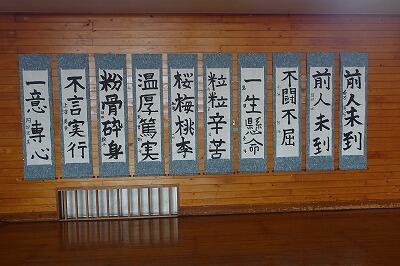 前人未到
前人未到
不闘不屈
一生懸命
粒粒辛苦
桜梅桃李
温厚篤実
粉骨砕身
不言実行
一意専心